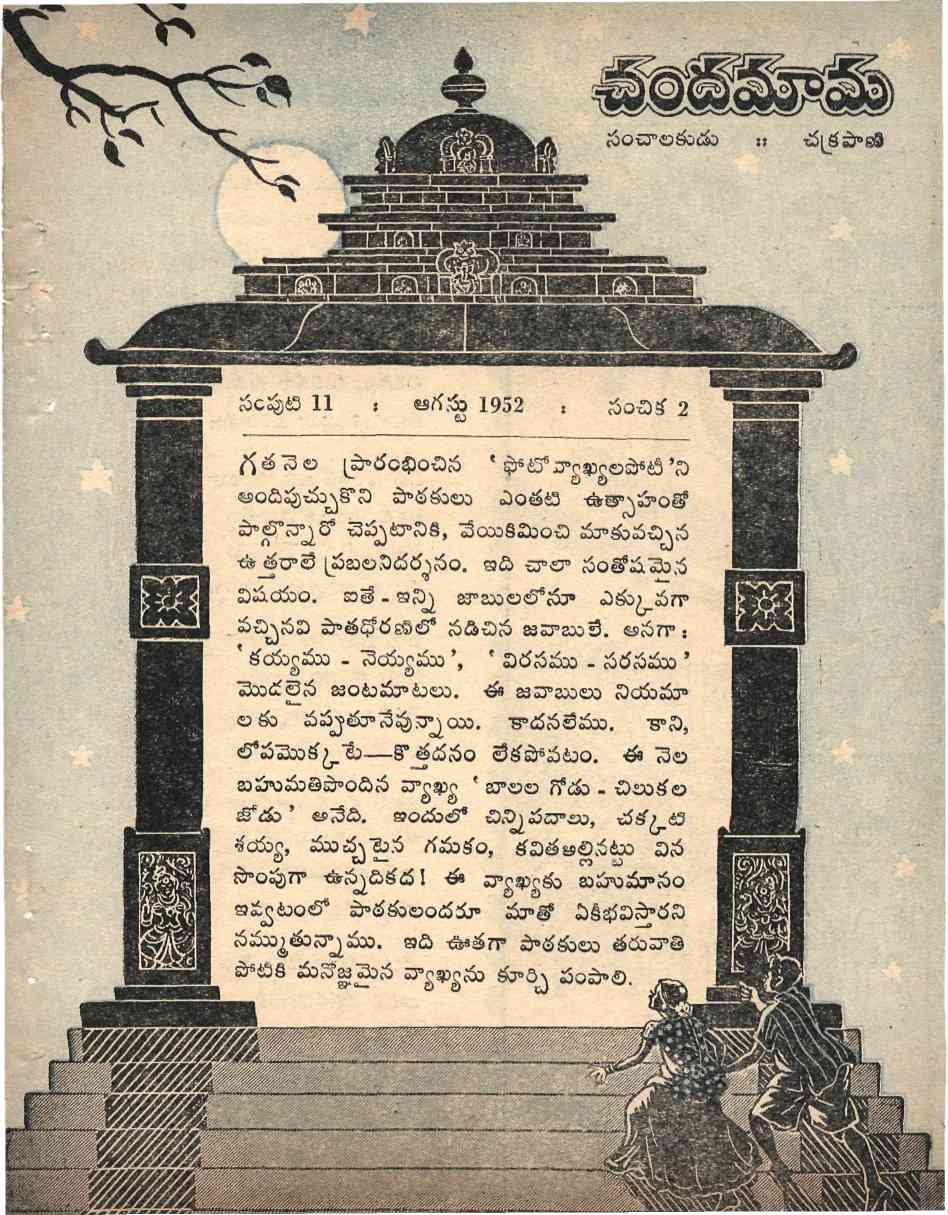 చందమామ
సంచాలకుడు :: చక్రపాణి
సంపుటి 11 : ఆగస్టు 1952 : సంచిక 2
గతనెల ప్రారంభించిన ‘ఫోటో వ్యాఖ్యలపోటీ’ని
అందిపుచ్చుకొని పాఠకులు ఎంతటి ఉత్సాహంతో
పాల్గొన్నారో చెప్పటానికి, వేయికిమించి మాకువచ్చిన
ఉత్తరాలే ప్రబలనిదర్శనం. ఇది చాలా సంతోషమైన
విషయం. ఐతే - ఇన్ని జాబులలోనూ ఎక్కువగా
వచ్చినవి పాతధోరణిలో నడిచిన జవాబులే. అనగా :
‘కయ్యము - నెయ్యము’, ‘విరసము - సరసము’
మొదలైన జంటమాటలు. ఈ జవాబులు నియమా
లకు వప్పుతూనేవున్నాయి. కాదనలేము. కాని,
లోపమొక్కటే—కొత్తదనం లేకపోవటం. ఈ నెల
బహుమతిపొందిన వ్యాఖ్య ‘బాలల గోడు - చిలుకల
జోడు’ అనేది. ఇందులో చిన్నిపదాలు, చక్కటి
శయ్య, ముచ్చటైన గమకం, కవితఅల్లినట్టు విన
సొంపుగా ఉన్నదికద! ఈ వ్యాఖ్యకు బహుమానం
ఇవ్వటంలో పాఠకులందరూ మాతో ఏకీభవిస్తారని
నమ్ముతున్నాము. ఇది ఊతగా పాఠకులు తరువాతి
పోటీకి మనోజ్ఞమైన వ్యాఖ్యను కూర్చి పంపాలి.